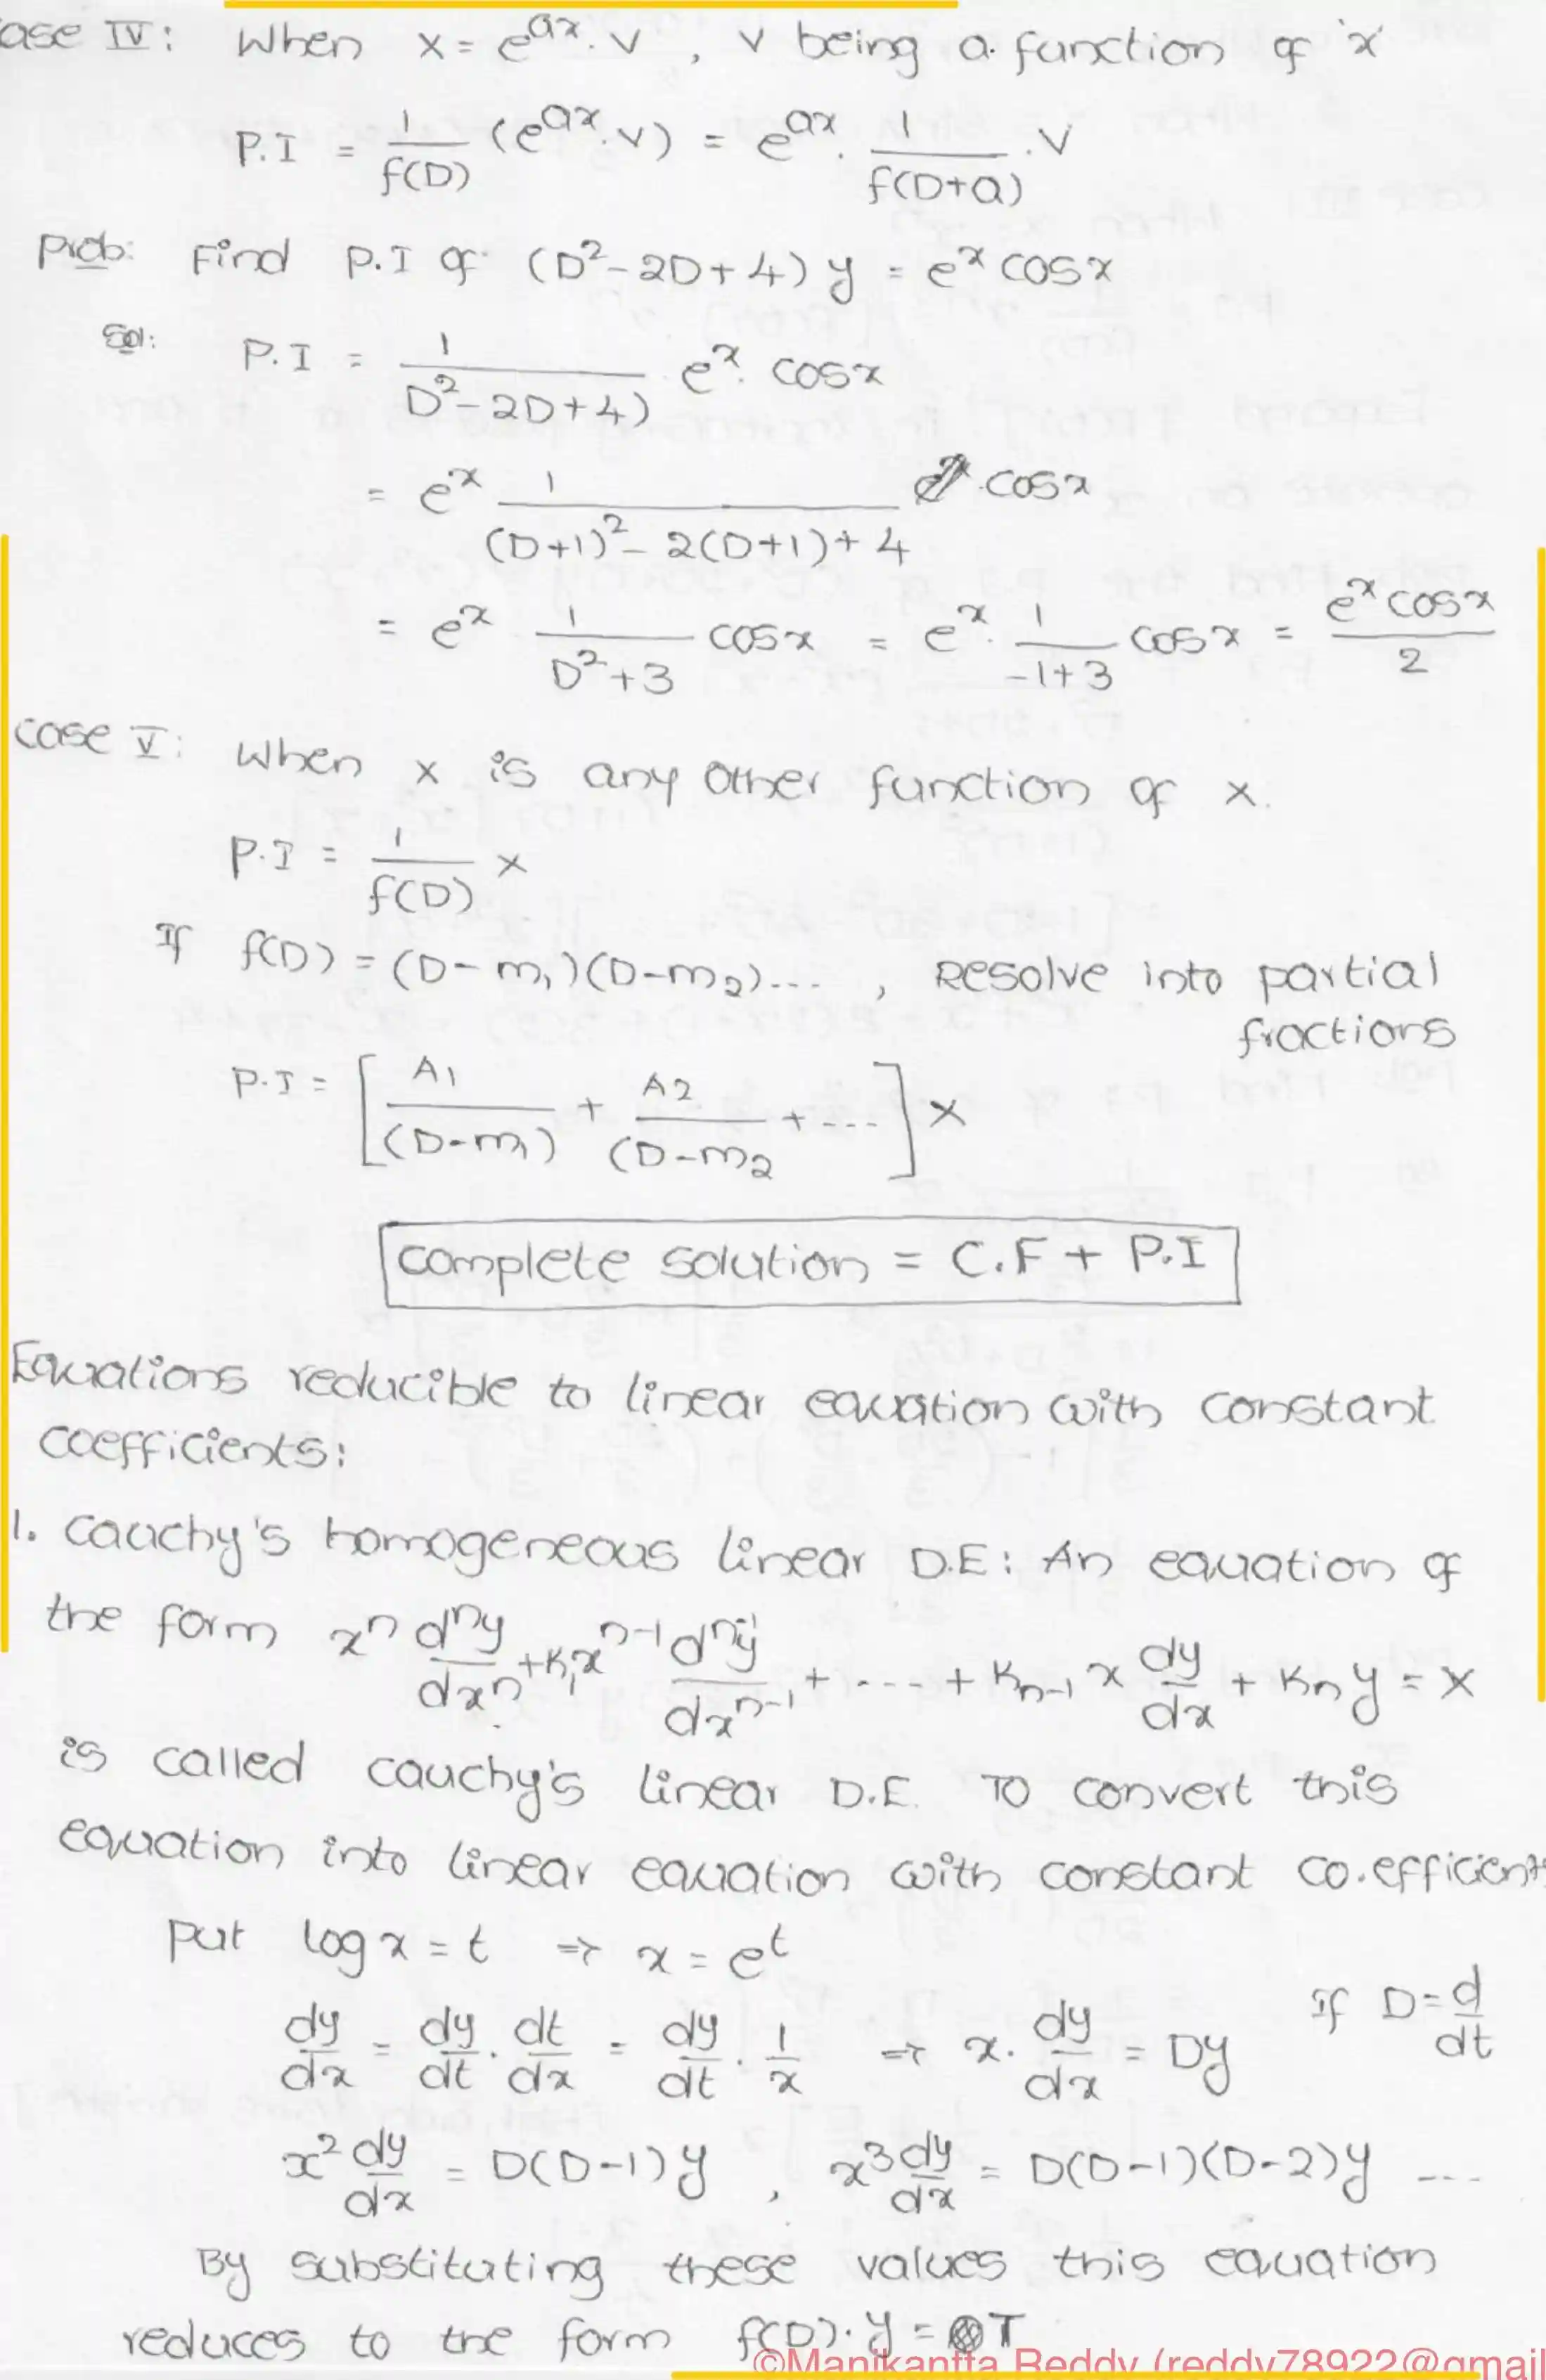 ase IV: When X = e^{ax}.V , V being a function of 'x'
P.I = 1/f(D) (e^{ax}.V) = e^{ax}. 1/f(D+a) .V
Prob: Find P.I of (D²-2D+4) y = e^x cosx
Sol: P.I = 1/D²-2D+4) e^x. cosx
= e^x 1/(D+1)²-2(D+1)+4 .cosx
= e^x 1/D²+3 cosx = e^x. 1/-1+3 cosx = e^x cosx/2
Case V: When X is any other function of x.
P.I = 1/f(D) X
If f(D) = (D-m₁)(D-m₂)--- , Resolve into partial
fractions
P.I = [A1/(D-m₁) + A2/(D-m₂ + ---] X
Complete solution = C.F + P.I
Equations reducible to linear equation with constant
coefficients:
1. Cauchy's homogeneous linear D.E: An equation of
the form x^n d^ny/dx^n + K₁x^{n-1} d^{n-1}y/dx^{n-1} + ---- + K_{n-1} x dy/dx + K_n y = X
is called cauchy's linear D.E. To convert this
equation into linear equation with constant co.efficients
Put log x = t ⇒ x = e^t
dy/dx = dy/dt . dt/dx = dy/dt . 1/x ⇒ x. dy/dx = Dy If D = d/dt
x² dy/dx = D(D-1)y , x³ dy/dx = D(D-1)(D-2)y ---
By substituting these values this equation
reduces to the form f(D).y = T
©Manikanta Reddy (reddy78922@gmail